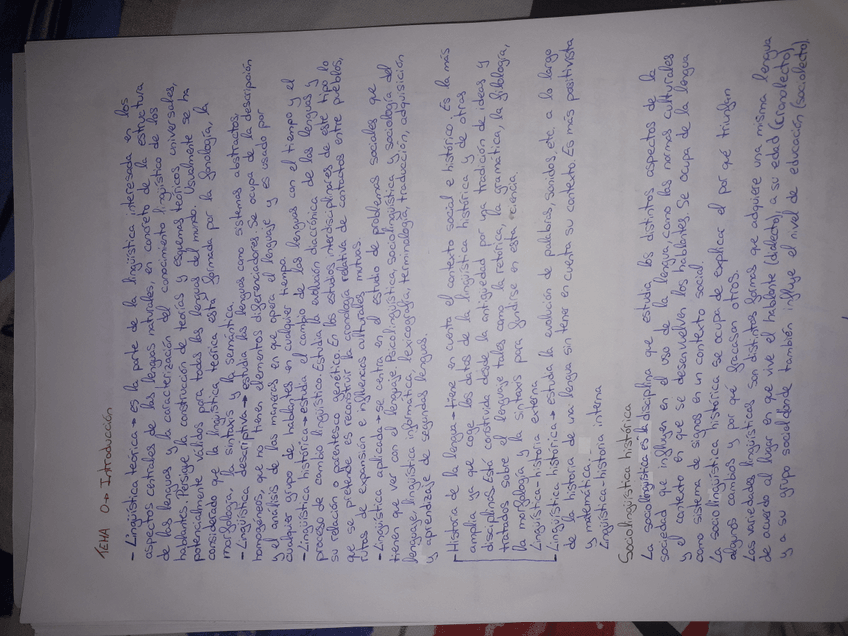 TEMA 0→ Introducción
- Lingüística teórica → es la parte de la lingüística interesada en los
aspectos centrales de las lenguas naturales, en concreto de la estructura
de las lenguas y la caracterización del conocimiento lingüístico de los
hablantes. Persigue la construcción de teorías y esquemas teóricos universales,
potencialmente válidos para todas las lenguas del mundo. Usualmente se ha
considerado que la lingüística teórica está formada por la fonología, la
morfología, la sintaxis y la semántica.
- Lingüística descriptiva → estudia las lenguas como sistemas abstractos
homogéneos, que no tienen elementos diferenciadores. Se ocupa de la descripción
y el análisis de las maneras en que opera el lenguaje y es usado por
cualquier grupo de hablantes en cualquier tiempo.
- Lingüística histórica → estudia el cambio de las lenguas con el tiempo y el
proceso de cambio lingüístico. Estudia la evolución diacrónica de las lenguas y
su relación o parentesco genético. En los estudios interdisciplinares de este tipo lo
que se pretende es reconstruir la cronología relativa de contactos entre pueblos,
rutas de expansión e influencias culturales mutuas.
- Lingüística aplicada → se centra en el estudio de problemas sociales que
tienen que ver con el lenguaje. Psicolingüística, sociolingüística y sociología del
lenguaje, lingüística informática, lexicografía, terminología, traducción, adquisición
y aprendizaje de segundas lenguas.
Historia de la lengua → tiene en cuenta el contexto social e histórico. Es la más
amplia ya que coge los datos de la lingüística histórica y de otras
disciplinas. Está constituida desde la antigüedad por una tradición de ideas y
tratados sobre el lenguaje tales como la retórica, la gramática, la filología,
la morfología y la sintaxis para fundirse en esta ciencia.
Lingüística-historia externa
Lingüística histórica → estudia la evolución de palabras, sonidos, etc. a lo largo
de la historia de una lengua sin tener en cuenta su contexto. Es más positivista
y matemática.
Lingüística-historia interna
Sociolingüística histórica
La sociolingüística es la disciplina que estudia los distintos aspectos de la
sociedad que influyen en el uso de la lengua, como las normas culturales
y el contexto en que se desenvuelven los hablantes. Se ocupa de la lengua
como sistema de signos en un contexto social.
La sociolingüística histórica se ocupa de explicar el por qué triunfan
algunos cambios y por qué fracasan otros.
Las variedades lingüísticas son distintas formas que adquiere una misma lengua
de acuerdo al lugar en que vive el hablante (dialecto), a su edad (cronolecto)
y a su grupo social donde también influye el nivel de educación (sociolecto).